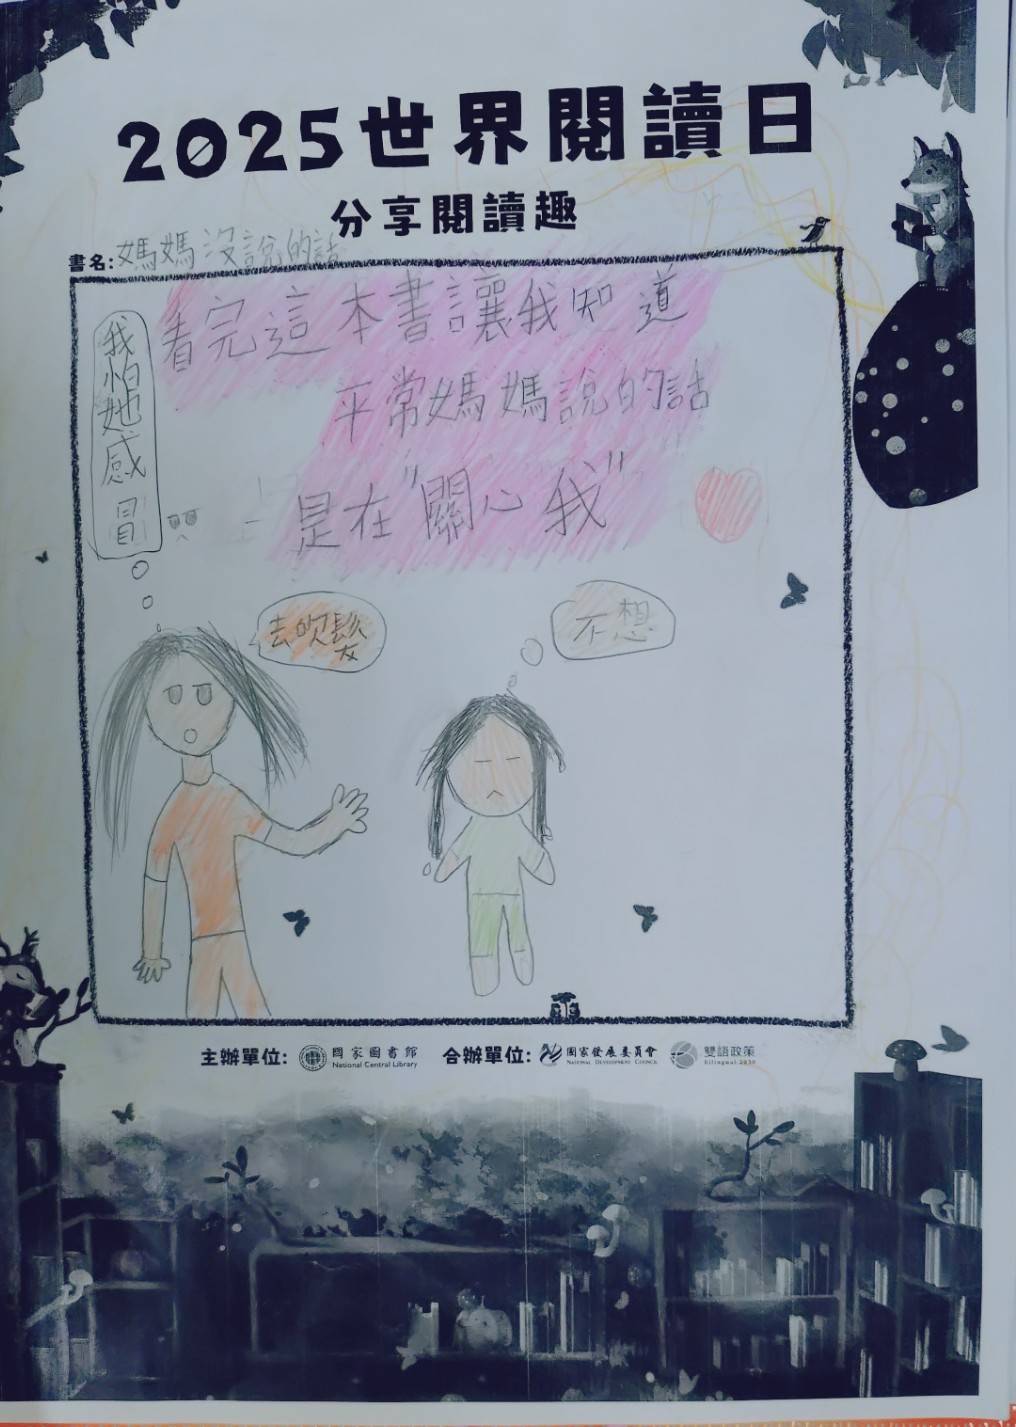 2025世界閱讀日
分享閱讀趣
書名:媽媽沒說的話
看完這本書讓我知道
平常媽媽說的話
是在"關心我"
我怕她感冒
去吹髮
不想
主辦單位: 國家圖書館 合辦單位: 國家發展委員會 雙語政策
National Central Library NATIONAL DEVELOPMENT COUNCIL Bilingual 2030